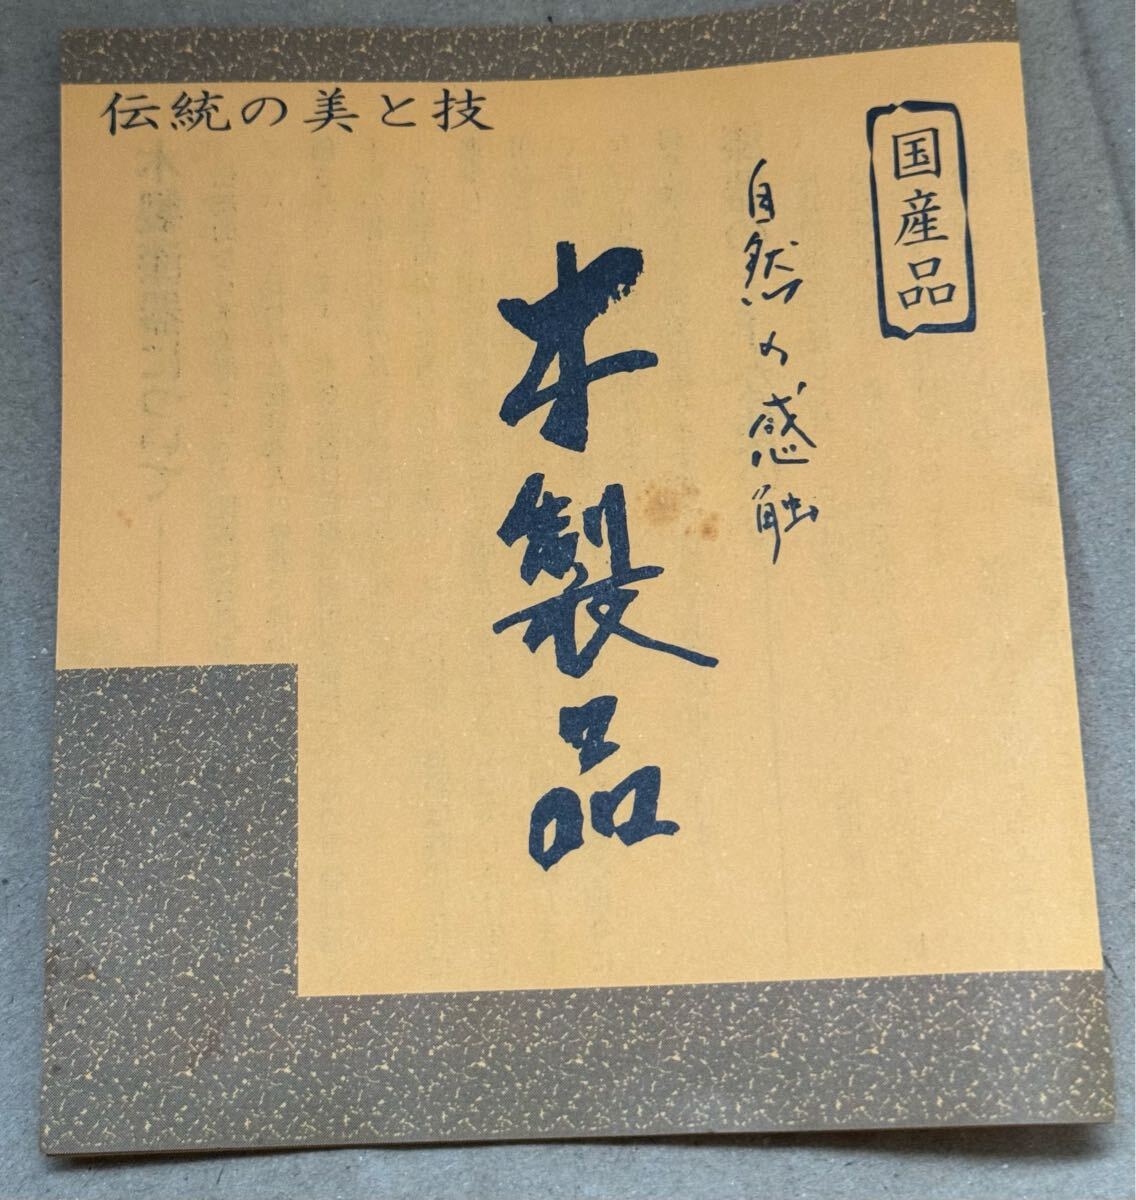 伝統の美と技
国産品
自然の感触
木製品